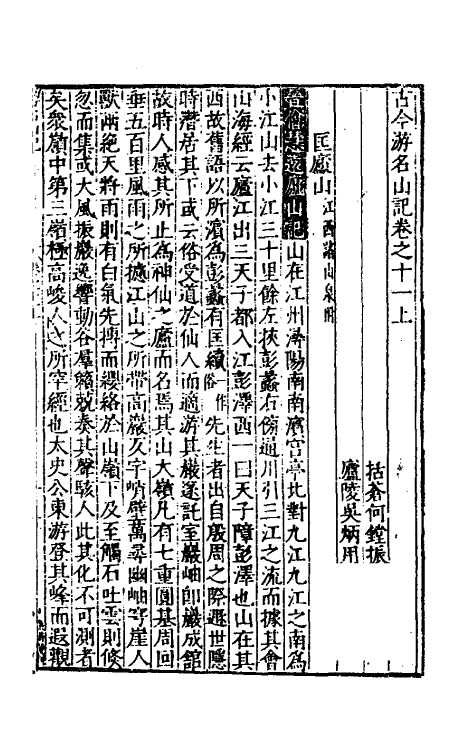 古今游名山記卷之十一上
括蒼何鏜振
廬陵吳炳用
匡廬山江西諸山泉附
晉釋慧遠廬山記山在江州潯陽南南濱宮亭北對九江九江之南爲
小江山去小江三十里餘左挾彭蠡右傍通川引三江之流而據其會
山海經云廬江出三天子都入江彭澤西一曰天子障彭澤也山在其
西故舊語以所濱爲彭蠡有匡續一作俗先生者出自殷周之際遯世隱
時潛居其下或云俗受道於仙人而適游其巖遂託室巖岫即巖成舘
故時人感其所止爲神仙之廬而名焉其山大嶺凡有七重圓基周回
垂五百里風雨之所攄江山之所帶高巖仄宇峭壁萬尋幽岫穹崖人
獸兩絕天將雨則有白氣先摶而纓絡於山嶺下及至觸石吐雲則倏
忽而集或大風振巖逸響動谷羣籟競奏其聲駭人此其化不可測者
矣衆嶺中第三嶺極高峻人之所罕經也太史公東游登其峰而遐觀